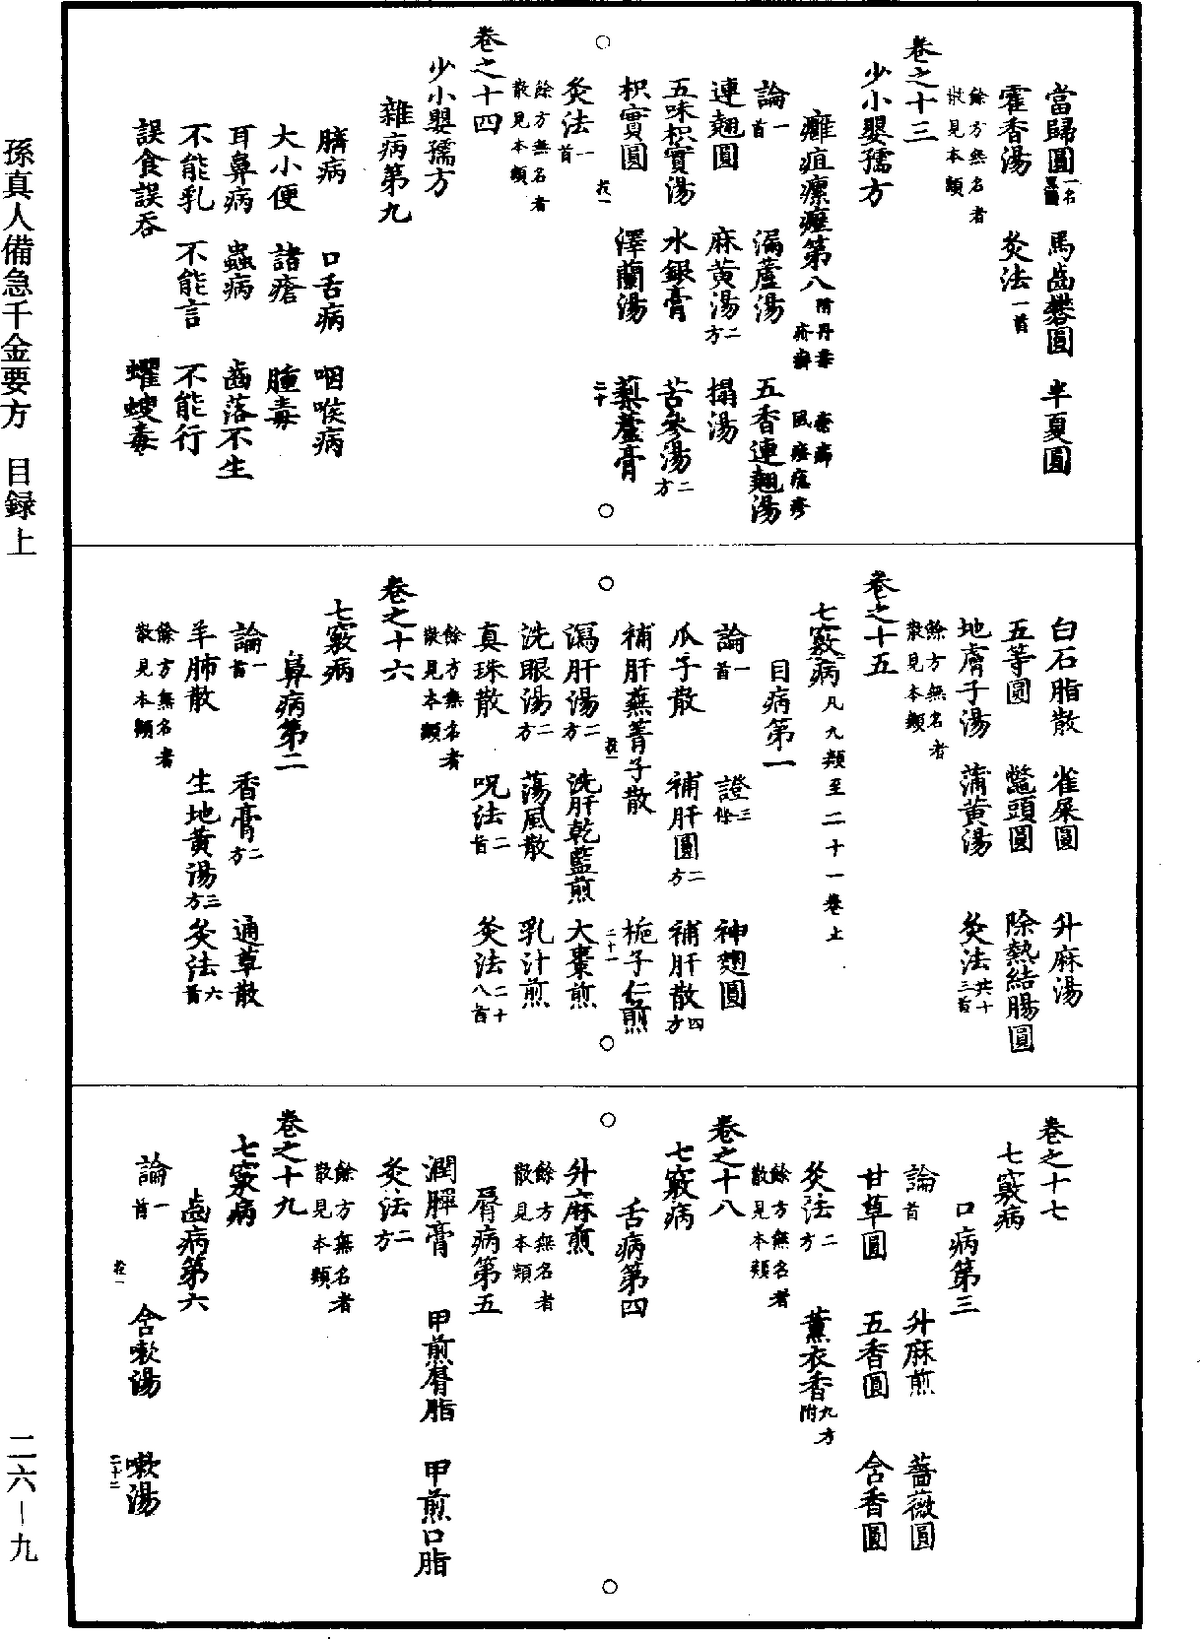 當歸圓一名黑圓 馬齒礬圓 半夏圓
藿香湯 灸法一首
餘方無名者散見本類
卷之十三
少小嬰孺方
癰疽瘰癧第八附丹毒 瘡癤 疥癬 風瘙癮疹
論一首 漏蘆湯 五香連翹湯
連翹圓 麻黃湯二方 搨湯
五味枳實湯 水銀膏 苦參湯二方
枳實圓 澤蘭湯 藜蘆膏
二十
灸法一首
餘方無名者散見本類
卷之十四
少小嬰孺方
雜病第九
臍病 口舌病 咽喉病
大小便 諸瘡 腫毒
耳鼻病 蟲病 齒落不生
不能乳 不能言 不能行
誤食誤吞 蠼螋毒
白石脂散 雀屎圓 升麻湯
五等圓 鼈頭圓 除熱結腸圓
地膚子湯 蒲黃湯 灸法共十三首
餘方無名者散見本類
卷之十五
七竅病凡九類至二十一卷止
目病第一
論一首 證三條 神麴圓
瓜子散 補肝圓二方 補肝散四方
補肝蕪菁子散 梔子仁煎
二十一
瀉肝湯二方 洗肝乾藍煎 大棗煎
洗眼湯二方 蕩風散 乳汁煎
真珠散 呪法二首 灸法二十八首
餘方無名者散見本類
卷之十六
七竅病
鼻病第二
論一首 香膏二方 通草散
羊肺散 生地黃湯三方 灸法六首
餘方無名者散見本類
卷之十七
七竅病
口病第三
論一首 升麻煎 薔薇圓
甘草圓 五香圓 含香圓
灸法二方 薰衣香九方附
餘方無名者散見本類
卷之十八
七竅病
舌病第四
升麻煎
餘方無名者散見本類
脣病第五
潤脾膏 甲煎脣脂 甲煎口脂
灸法二方
餘方無名者散見本類
卷之十九
七竅病
齒病第六
論一首 含嗽湯 嗽湯
二十二
孫真人備急千金要方 目録上
二六－九